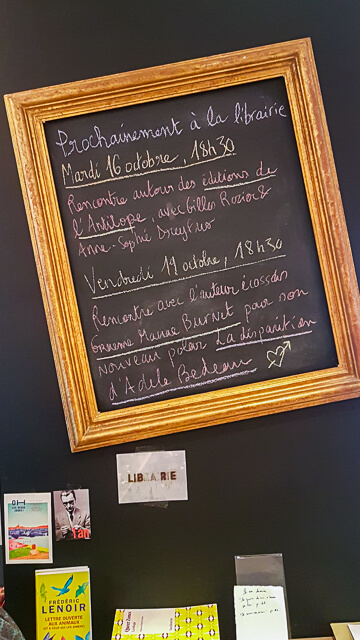 Prochainement à la librairie
Mardi 16 octobre, 18h30
Rencontre autour des éditions de
l'Antilope, avec Gilles Rozier &
Anne-Sophie Dreyfus
Vendredi 19 octobre, 18h30
Rencontre avec l'auteur écossais
Graeme Macrae Burnet pour son
nouveau polar La disparition
d'Adèle Bedeau
LIBRAIRIE
OH
FRÉDÉRIC
LENOIR
LETTRE OUVERTE
AUX ANIMAUX
(ET À CEUX QUI LES AIMENT)